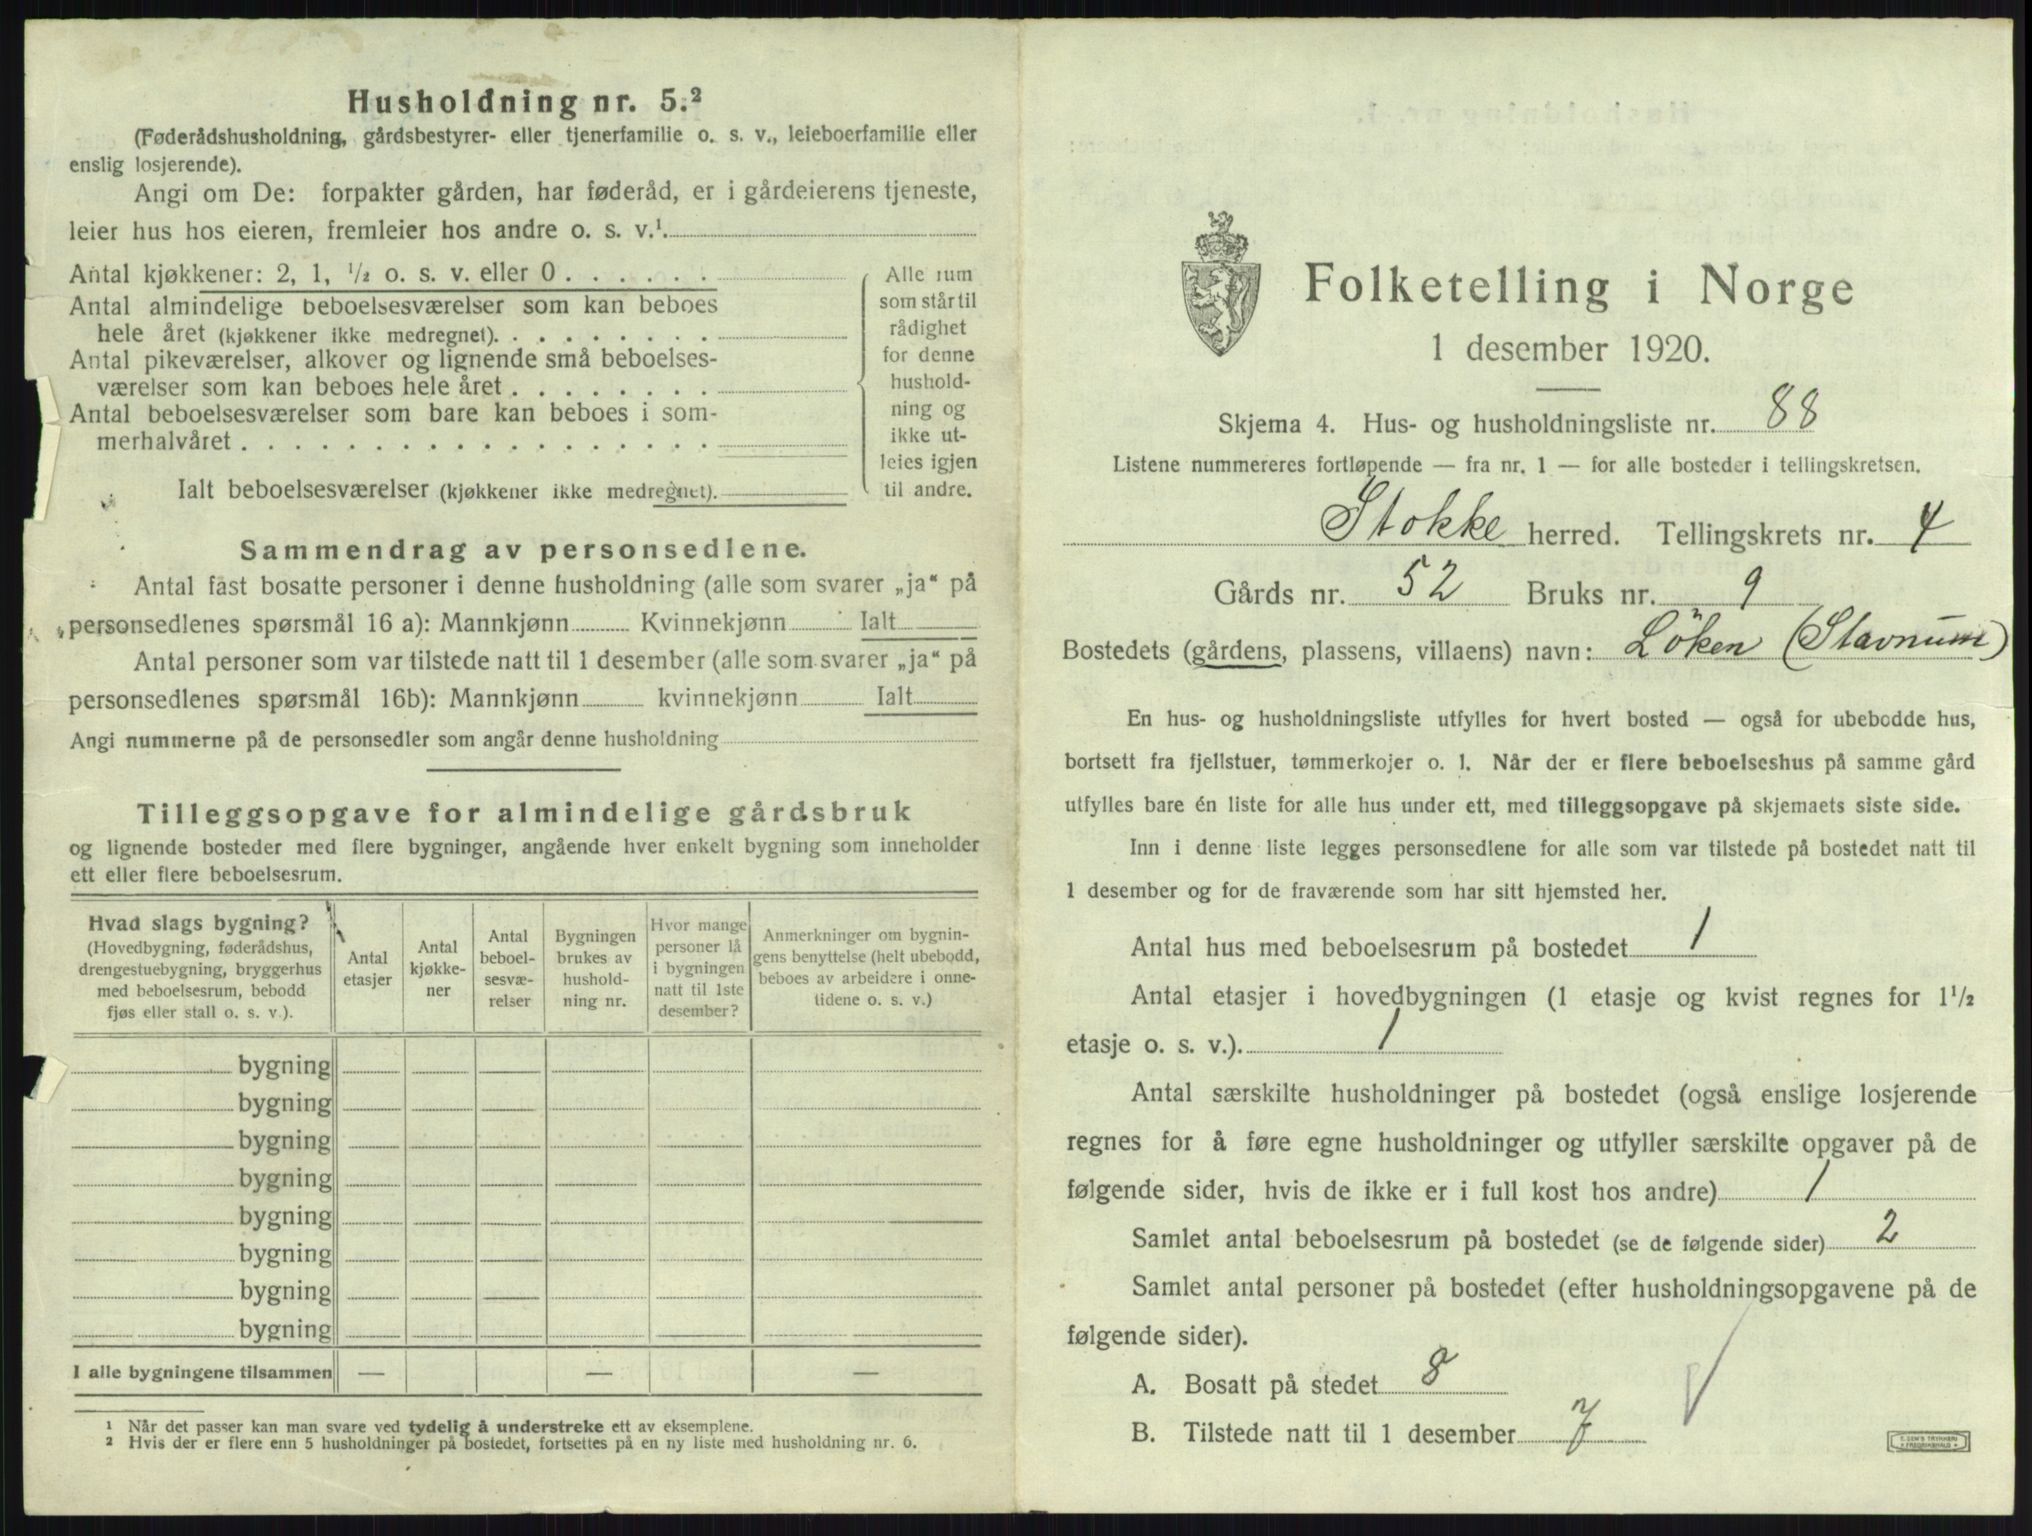 Husholdning nr. 5.²
(Føderådshusholdning, gårdsbestyrer- eller tjenerfamilie o. s. v., leieboerfamilie eller
enslig losjerende).
Angi om De: forpakter gården, har føderåd, er i gårdeierens tjeneste,
leier hus hos eieren, fremleier hos andre o. s. v.¹
Antal kjøkkener: 2, 1, ½ o. s. v. eller 0 . . . . . .
Antal almindelige beboelsesværelser som kan beboes
hele året (kjøkkener ikke medregnet). . . . . . . . .
Antal pikeværelser, alkover og lignende små beboelses-
værelser som kan beboes hele året . . . . . . . .
Antal beboelsesværelser som bare kan beboes i som-
merhalvåret . . . . . . . . . . . . . . . . . .
Ialt beboelsesværelser (kjøkkener ikke medregnet).
Alle rum
som står til
rådighet
for denne
hushold-
ning og
ikke ut-
leies igjen
til andre.
Sammendrag av personsedlene.
Antal fast bosatte personer i denne husholdning (alle som svarer „ja“ på
personsedlenes spørsmål 16 a): Mannkjønn Kvinnekjønn Ialt
Antal personer som var tilstede natt til 1 desember (alle som svarer „ja“ på
personsedlenes spørsmål 16b): Mannkjønn kvinnekjønn Ialt
Angi nummerne på de personsedler som angår denne husholdning
Tilleggsopgave for almindelige gårdsbruk
og lignende bosteder med flere bygninger, angående hver enkelt bygning som inneholder
ett eller flere beboelsesrum.
Hvad slags bygning?
(Hovedbygning, føderådshus,
drengestuebygning, bryggerhus
med beboelsesrum, bebodd
fjøs eller stall o. s. v.).
Antal
etasjer
Antal
kjøkke-
ner
Antal
beboel-
sesvæ-
relser
Bygningen
brukes av
hushold-
ning nr.
Hvor mange
personer lå
i bygningen
natt til 1ste
desember?
Anmerkninger om bygnin-
gens benyttelse (helt ubebodd,
beboes av arbeidere i onne-
tidene o. s. v.)
bygning
bygning
bygning
bygning
bygning
bygning
bygning
bygning
I alle bygningene tilsammen — — —
¹ Når det passer kan man svare ved tydelig å understreke ett av eksemplene.
² Hvis der er flere enn 5 husholdninger på bostedet, fortsettes på en ny liste med husholdning nr. 6.
Folketelling i Norge
1 desember 1920.
Skjema 4. Hus- og husholdningsliste nr. 88
Listene nummereres fortløpende — fra nr. 1 — for alle bosteder i tellingskretsen.
Stokke herred. Tellingskrets nr. 4
Gårds nr. 52 Bruks nr. 9
Bostedets (gårdens, plassens, villaens) navn: Löken (Stavnum)
En hus- og husholdningsliste utfylles for hvert bosted — også for ubebodde hus,
bortsett fra fjellstuer, tømmerkojer o. l. Når der er flere beboelseshus på samme gård
utfylles bare én liste for alle hus under ett, med tilleggsopgave på skjemaets siste side.
Inn i denne liste legges personsedlene for alle som var tilstede på bostedet natt til
1 desember og for de fraværende som har sitt hjemsted her.
Antal hus med beboelsesrum på bostedet 1
Antal etasjer i hovedbygningen (1 etasje og kvist regnes for 1½
etasje o. s. v.). 1
Antal særskilte husholdninger på bostedet (også enslige losjerende
regnes for å føre egne husholdninger og utfyller særskilte opgaver på de
følgende sider, hvis de ikke er i full kost hos andre) 1
Samlet antal beboelsesrum på bostedet (se de følgende sider) 2
Samlet antal personer på bostedet (efter husholdningsopgavene på de
følgende sider).
A. Bosatt på stedet 8
B. Tilstede natt til 1 desember 7